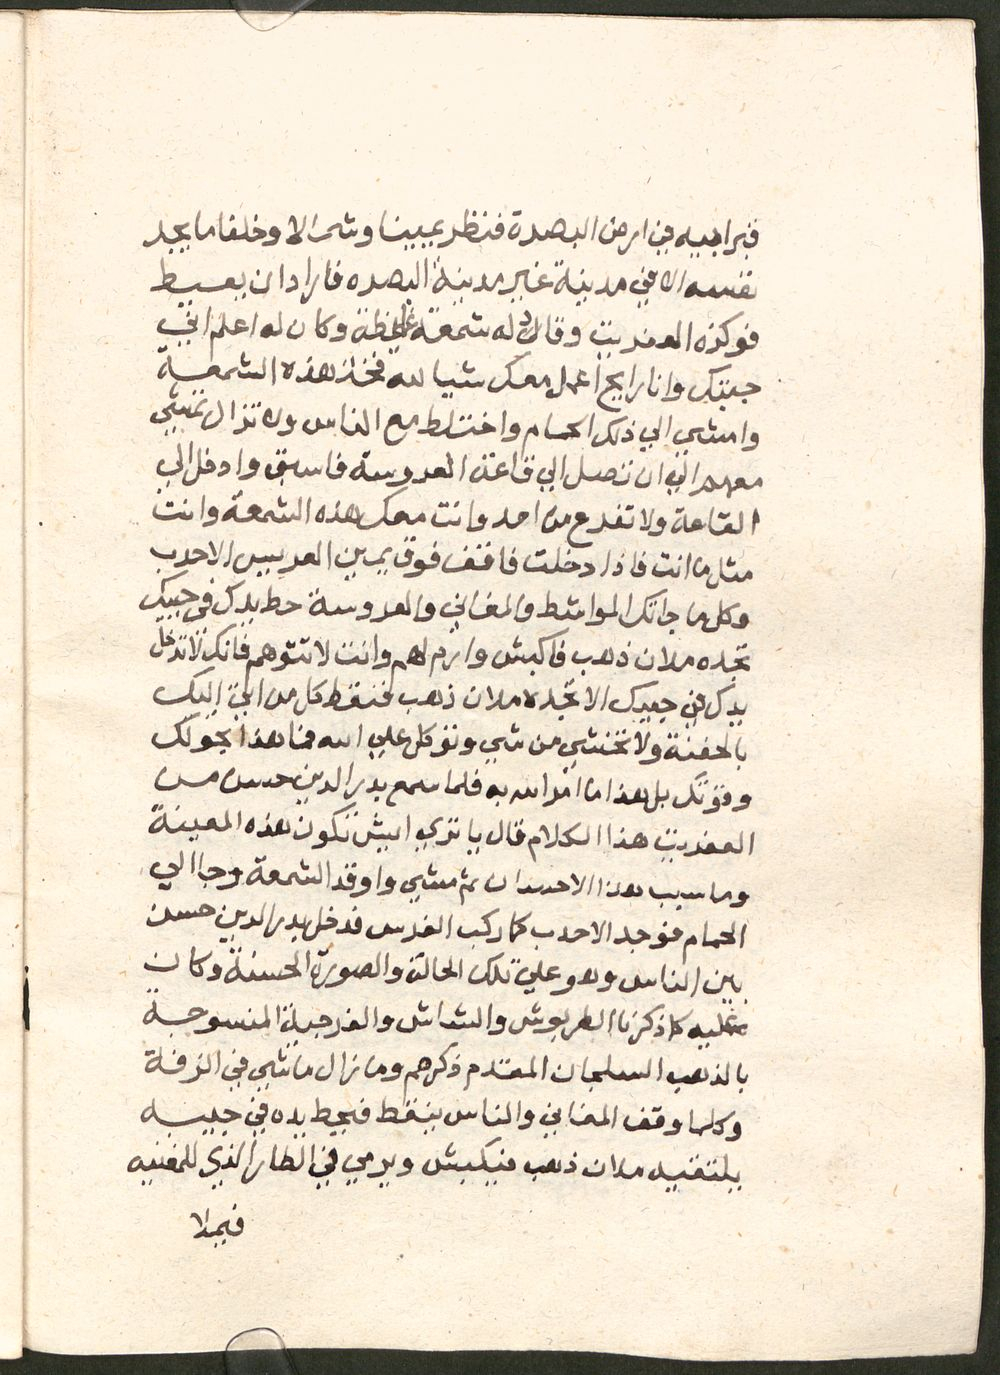 قبر ابيه في ارض البصرة فنظر يمينا وشمالا وخلفا ما يجد
نفسه الا في مدينة غير مدينة البصره فاراد ان يعيط
فوكزه العفريت وقاد له شمعة غليظة وكان له اعلم اني
جيبتك وانا رايح اعمل معك شيا لله فخذ هذه الشمعة
وامشي الي ذلك الحمام واختلط مع الناس ولا تزال تمشي
معهم الي ان تصل الي قاعة العروسة فاسبق وادخل الي
القاعة ولا تفزع من احد وانت معك هذه الشمعة وانت
مثل ما انت فاذا دخلت فاقف فوق يمين العريس الاحدب
وكل ما جاتك المواشط والمغاني والعروسة حط يدك في جيبك
تجده ملان ذهب فاكبش وارم لهم وانت لا تتوهم فانك لا تدخل
يدك في جيبك الا تجده ملان ذهب فنقط كل من اتي اليك
بالحفنة ولا تختشي من شي وتوكل علي الله فما هذا بحولك
وقوتك بل هذا ما امر الله به فلما سمع بدر الدين حسن من
العفريت هذا الكلام قال يا تري ايش تكون هذه المعينة
وما سبب هذا الاحسان ثم مشي واوقد الشمعة وجا الي
الحمام فوجد الاحدب كما ركب الفرس فدخل بدر الدين حسن
بين الناس وهو علي تلك الحالة والصورة الحسنة وكان
عليه كما ذكرنا الطربوش والشاش والفرجية المنسوجة
بالذهب السلجان المقدم ذكرهم وما زال ماشي في الزفة
وكلما وقف المغاني والناس ينقط فيحط يده في جيبه
يلتقيه ملان ذهب فيكبش ويرمي في الطار الذي للمغنيه
فيملا